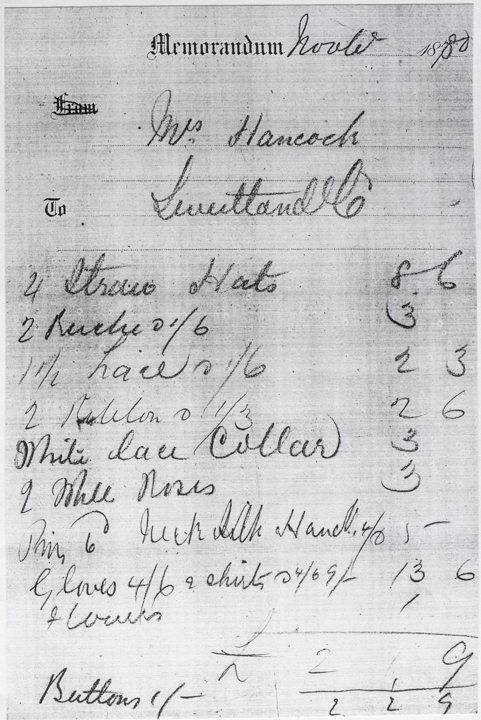 Memorandum Novbr 1880
From
Mrs Hancock
To Levitt and Co
4 Straw Hats 8 6
2 Ruche @ 1/6 3
1 1/2 Lace @ 1/6 2 3
2 Ribbon @ 1/3 2 6
White Lace Collar 3
2 Roses 3
Pins 6 Neck Silk Handk 4/ 5 -
Gloves 4/6 2 shirts @ 4/6 9/- 13 6
Flowers 1
£ 2 1 9
Buttons 1/- 2 2 9